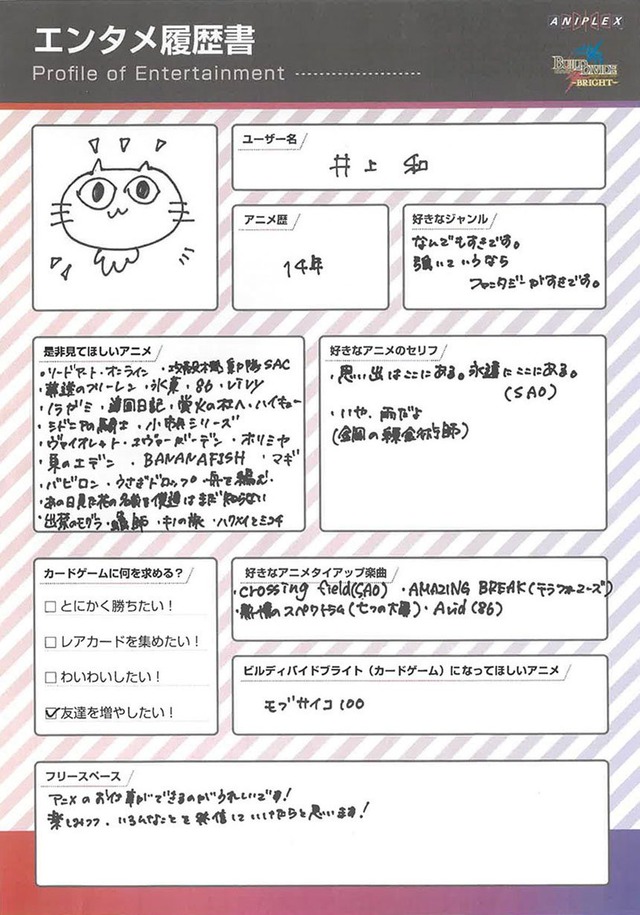 エンタメ履歴書
Profile of Entertainment
ANIPLEX
BUILD DIVIDE
-BRIGHT-
ユーザー名
井上 和
アニメ歴
14年
好きなジャンル
なんでもすきです。
強いていうなら
ファンタジーがすきです。
是非見てほしいアニメ
・ソードアート・オンライン ・攻殻機動隊SAC
・葬送のフリーレン ・氷菓 ・86 ・ViVy
・ノラガミ ・ 日記 ・蛍火の杜へ ・ハイキュー
・シドニアの騎士 ・ シリーズ
・ヴァイオレット・エヴァーガーデン ・ホリミヤ
・東のエデン ・BANANAFISH ・マギ
・バビロン ・うさぎドロップ ・舟を編む
・あの日見た花の名前を僕達はまだ知らない
・出禁のモグラ ・蟲師 ・キノの旅 ・ハクメイとミコチ
好きなアニメのセリフ
・思い出はここにある。永遠にここにある。
(SAO)
・いや、雨だよ
(金岡の錬金術師)
カードゲームに何を求める？
□とにかく勝ちたい！
□レアカードを集めたい！
□わいわいしたい！
☑友達を増やしたい！
好きなアニメタイアップ楽曲
・crossing field(SAO) ・AMAZING BREAK(テラフォーマーズ)
・熱情のスペクトラム(七つの大罪) ・Avid(86)
ビルディバイドブライト（カードゲーム）になってほしいアニメ
モブサイコ100
フリースペース
アニメのお仕事ができるのがうれしいです!
楽しみつつ、いろんなことを発信していけたらと思います!